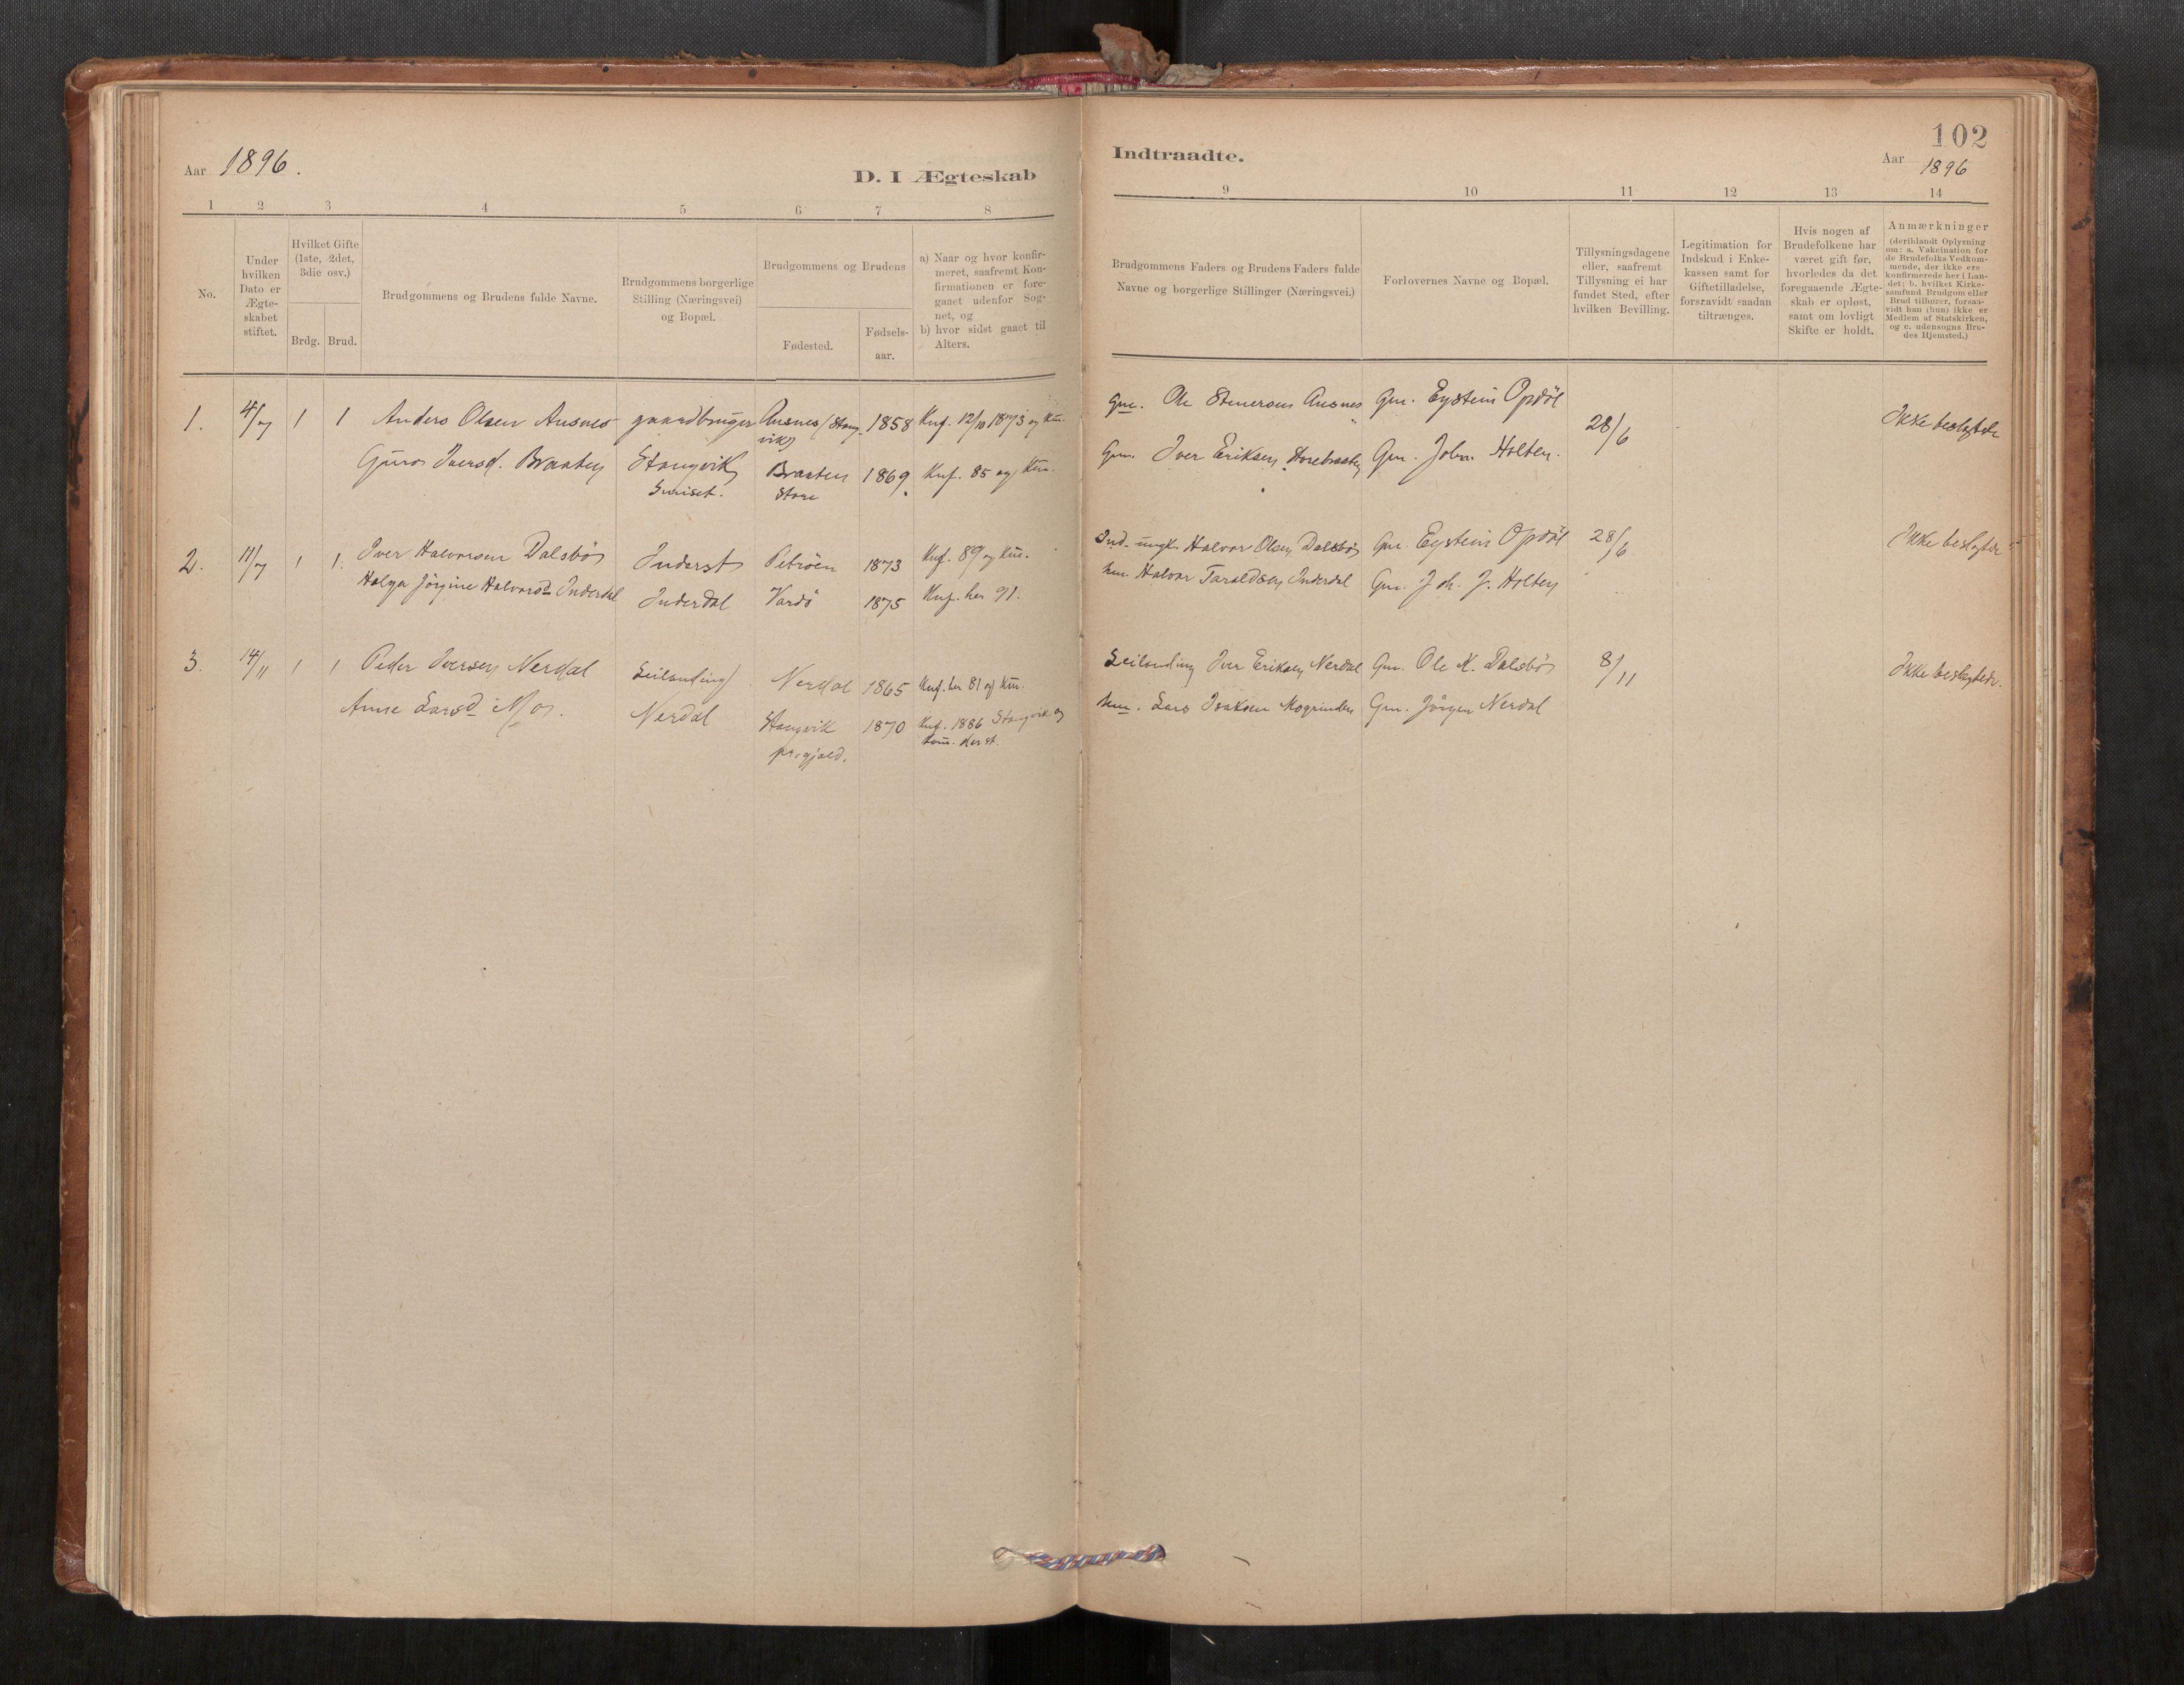 Aar 1896.
D. I Ægteskab
1 2 3 4 5 6 7 8
No.
Under hvilken Dato er Ægte-skabet stiftet.
Hvilket Gifte (1ste, 2det, 3die osv.)
Brdg. Brud.
Brudgommens og Brudens fulde Navne.
Brudgommens borgerlige Stilling (Næringsvei) og Bopæl.
Brudgommens og Brudens
Fødested.
Fødsels-aar.
a) Naar og hvor konfir-
meret, saafremt Kon-
firmationen er fore-
gaaet udenfor Sog-
net, og
b) hvor sidst gaaet til
Alters.
1. 4/7 1 1 Anders Olsen Ausnes gaardbruger Ausnes (Stang- 1858 Knf. 12/10 1873 og
vik)
Guro Iversd. Braaten Stangvik Braaten 1869 Knf. 85 og
Store
2. 11/7 1 1. Iver Halvorsen Dalsbø Inderst Petrøen 1873 Knf. 89 og
Helga Jørgine Halvorsd. Inderdal Inderdal Vardø 1875 Knf. her 91.
3. 14/11 1 1 Peder Iversen Nerdal Leilending Nerdal 1865 Knf. her 81 og
Anne Larsd. Mo. Nerdal Stangvik 1870 Knf. 1886 Stangvik og
prgjæld.
102
Indtraadte.
Aar 1896
9 10 11 12 13 14
Brudgommens Faders og Brudens Faders fulde
Navne og borgerlige Stillinger (Næringsvei.)
Forlovernes Navne og Bopæl.
Tillysningsdagene
eller, saafremt
Tillysning ei har
fundet Sted, efter
hvilken Bevilling.
Legitimation for
Indskud i Enke-
kassen samt for
Giftetilladelse,
forsaavidt saadan
tiltrænges.
Hvis nogen af
Brudefolkene har
været gift før,
hvorledes da det
foregaaende Ægte-
skab er opløst,
samt om lovligt
Skifte er holdt.
Anmærkninger
(deriblandt Oplysning
om: a. Vakcination for
de Brudefolks Vedkom-
mende, der ikke ere
konfirmerede her i Lan-
det; b. hvilket Kirke-
samfund Brudgom eller
Brud tilhører, forsaa-
vidt han (hun) ikke er
Medlem af Statskirken,
og c. udensogns Bru-
des Hjemsted.)
Gm. Ole Stenersen Ausnes Gm. Eystein Opdøl 28/6 Ikke beslegtede
Gm. Iver Eriksen Storebraaten Gm. John Holten.
Ind. ungk. Halvor Olsen Dalsbø Gm. Eystein Opdøl 28/6 Ikke beslegtede
Hm. Halvor Taraldsen Inderdal Gm. Joh. J. Holten
Leilending Iver Eriksen Nerdal Gm. Ole K. Dalsbø 8/11 Ikke beslegtede.
Hm. Lars Isaksen Mogrinden Gm. Jørgen Nerdal